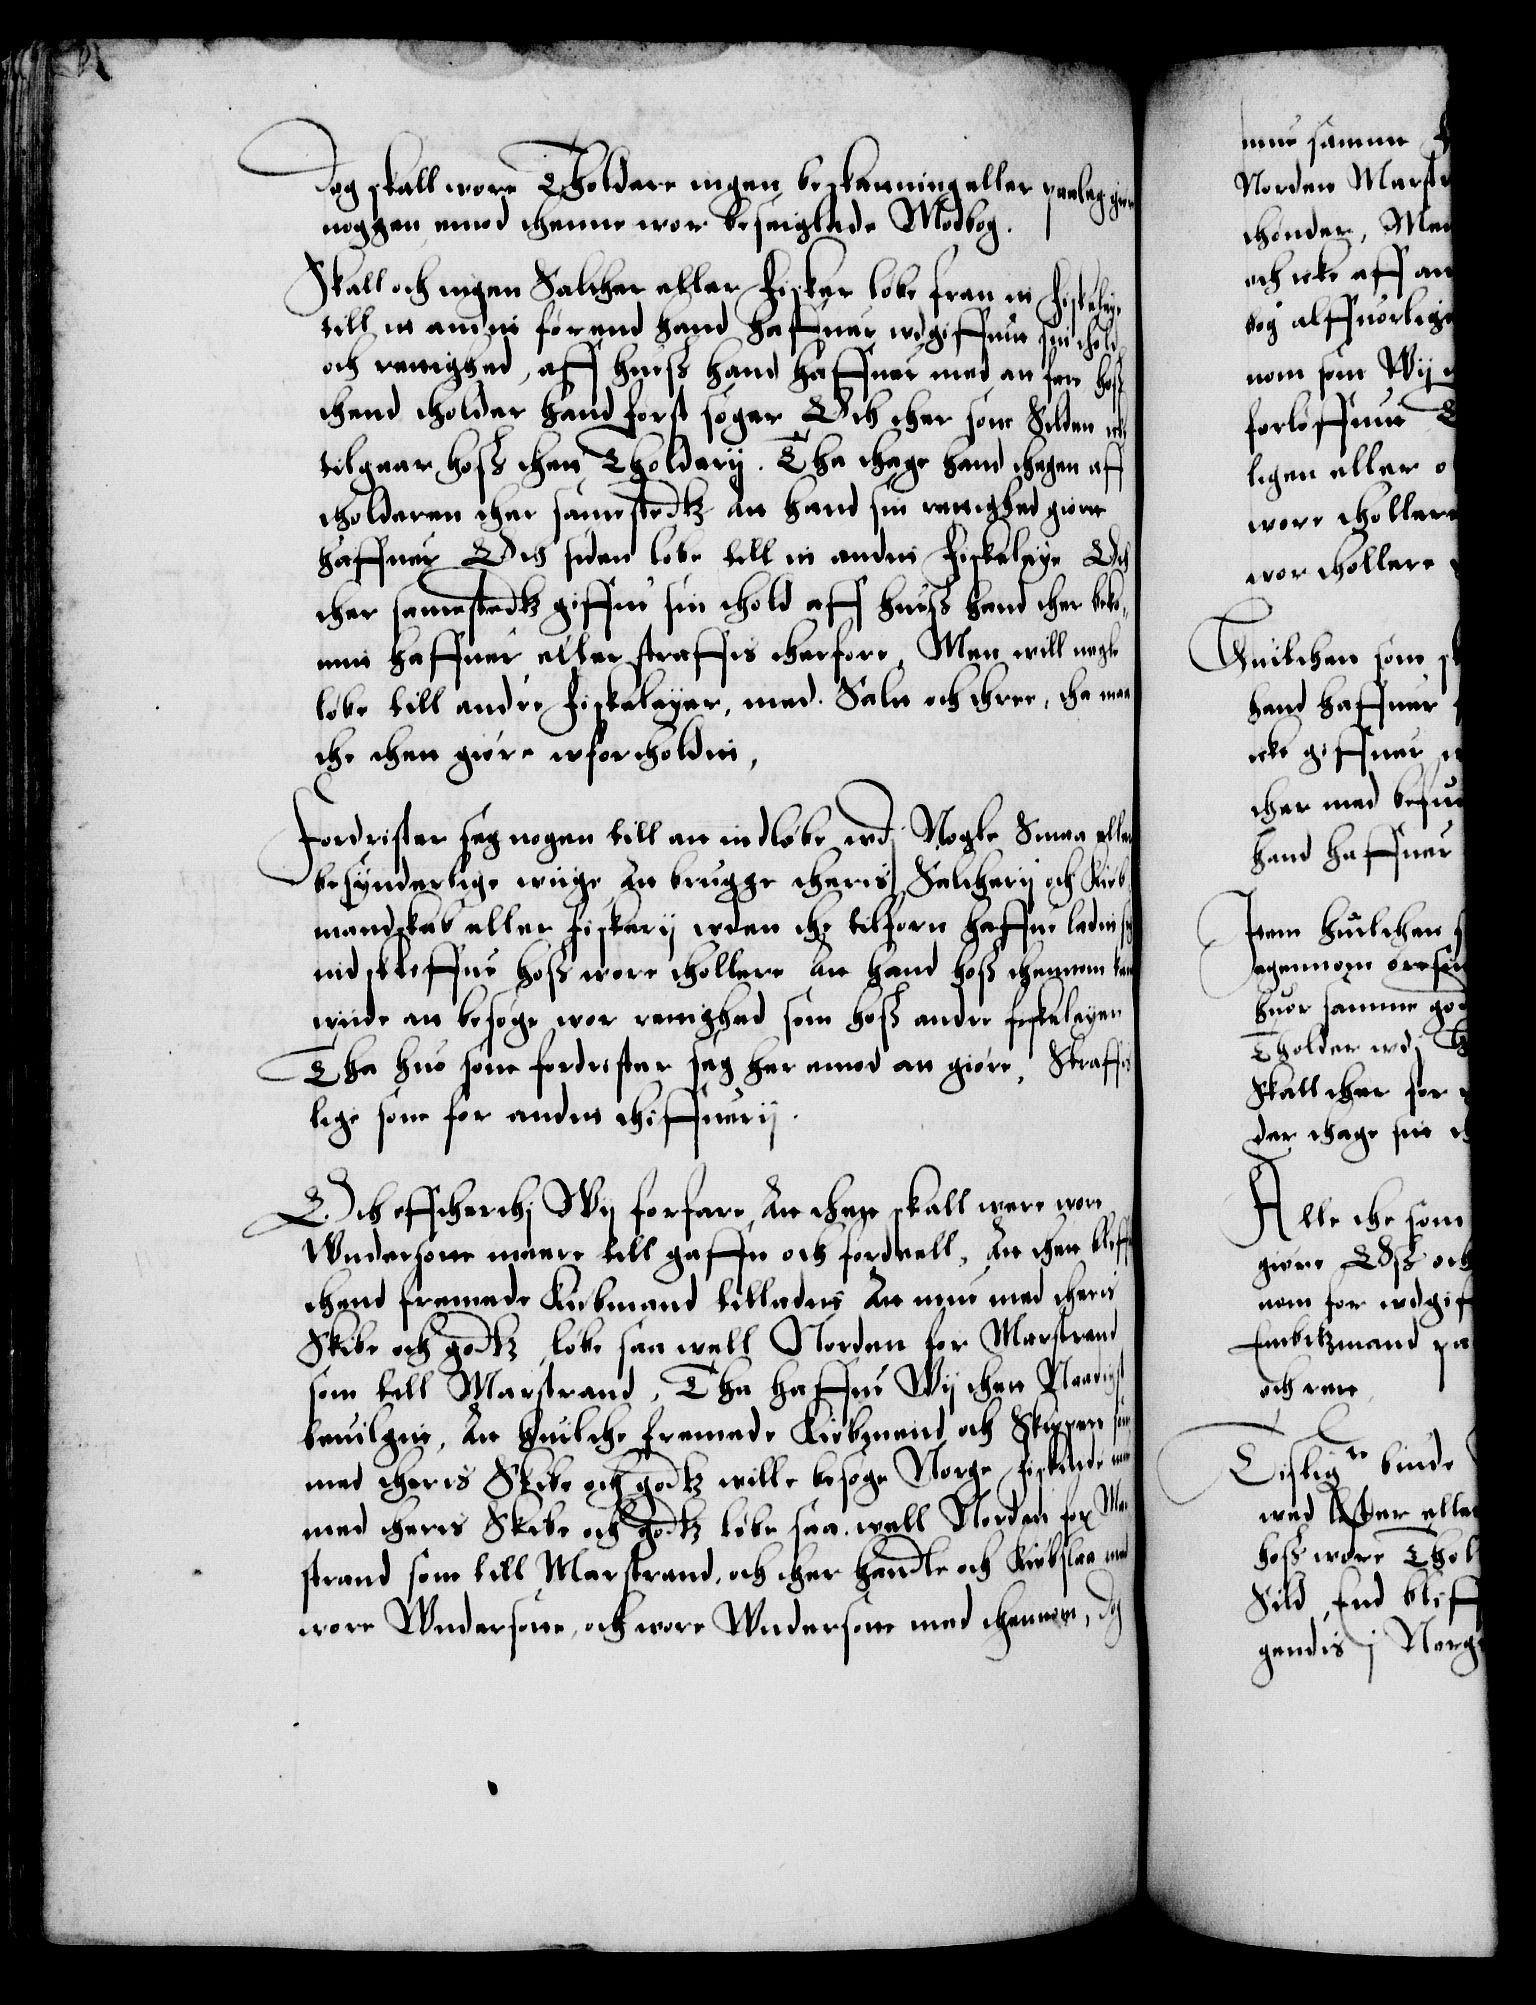 Dog skall wore Tholdere ingen beskatning eller paaleg giøre
noggen emod thenne wor beseiglede Modbog.
Skall och ingen Salther eller Fisker løbe fran en Fiskeleye
till en anden førend hand haffuer wdgiffuen sin thold
och rettighed, aff huess hand haffuer med at fare hoss
thend tholder hand først søger Och ther som Silden icke
tilgaar hoss then Tholderij. Tha thage hand thegen aff
tholderen ther samestedtz At hand sin rettighed giort
haffuer Och siden løbe till en anden Fiskeleye Och
ther samestedtz giffue sin thold aff huess hand ther beko-
men haffuer eller straffis therfore, Men will nogle
løbe till andre Fiskeleyer, med Salt och three, tha maa
the thet giøre wfortholdet,
Fordrister seg nogen till at indløbe wdj Nogle Smaa eller
besynderlige wiige At brugge theris Saltherij och Kiøb
mandskab eller Fiskerij wden the tilforn haffue ladet seg
indskriffue hoss wore thollere At hand hoss thennom kand
wiide at besøge wor rettighed som hoss andre fiskeleyer
Tha huo som fordrister seg her emod at giøre, Straffis
lige som for anden thiffuerij.
Och effthertj Wij forfare, At thet skall were wore
Wndersotte meere till gaffn och fordeell, At thet bliff
thend fremede Kiøbmand tilladet At mue med theris
Skibe och godtz løbe saa well Norden for Marstrand
som till Marstrand, Tha haffue Wij thet Naadigst
beuilget, At huilche fremede Kiøbmend och Skippere som
med theris Skibe och godtz wille besøge Norge fiskende mue
med theris Skibe och godtz løbe saa well Norden for Mar
strand som till Marstrand, och ther handle och Kiøbslaa med
wore Wndersotte, och wore Wndersotte med thennom, dog
mue samme
Norden Marstr
thønder, Men
och icke aff an
dog alffuorlige
nom som Wij
forløffuue
ligen eller
wore thollere
wor thollere
Huilchen som
hand haffuer
icke giffuer
ther med befun
hand haffuer
Item huilchen
Igennom øresu
huor samme god
Tholder wdj
Skall ther for
der thage sin
Alle the som
giøre Oss och
nom for wdgif
Embitzmand pa
och rett
Tisligeste binde
wed eller
hoss wore Thol
Sild, End bliff
gendis j Norge